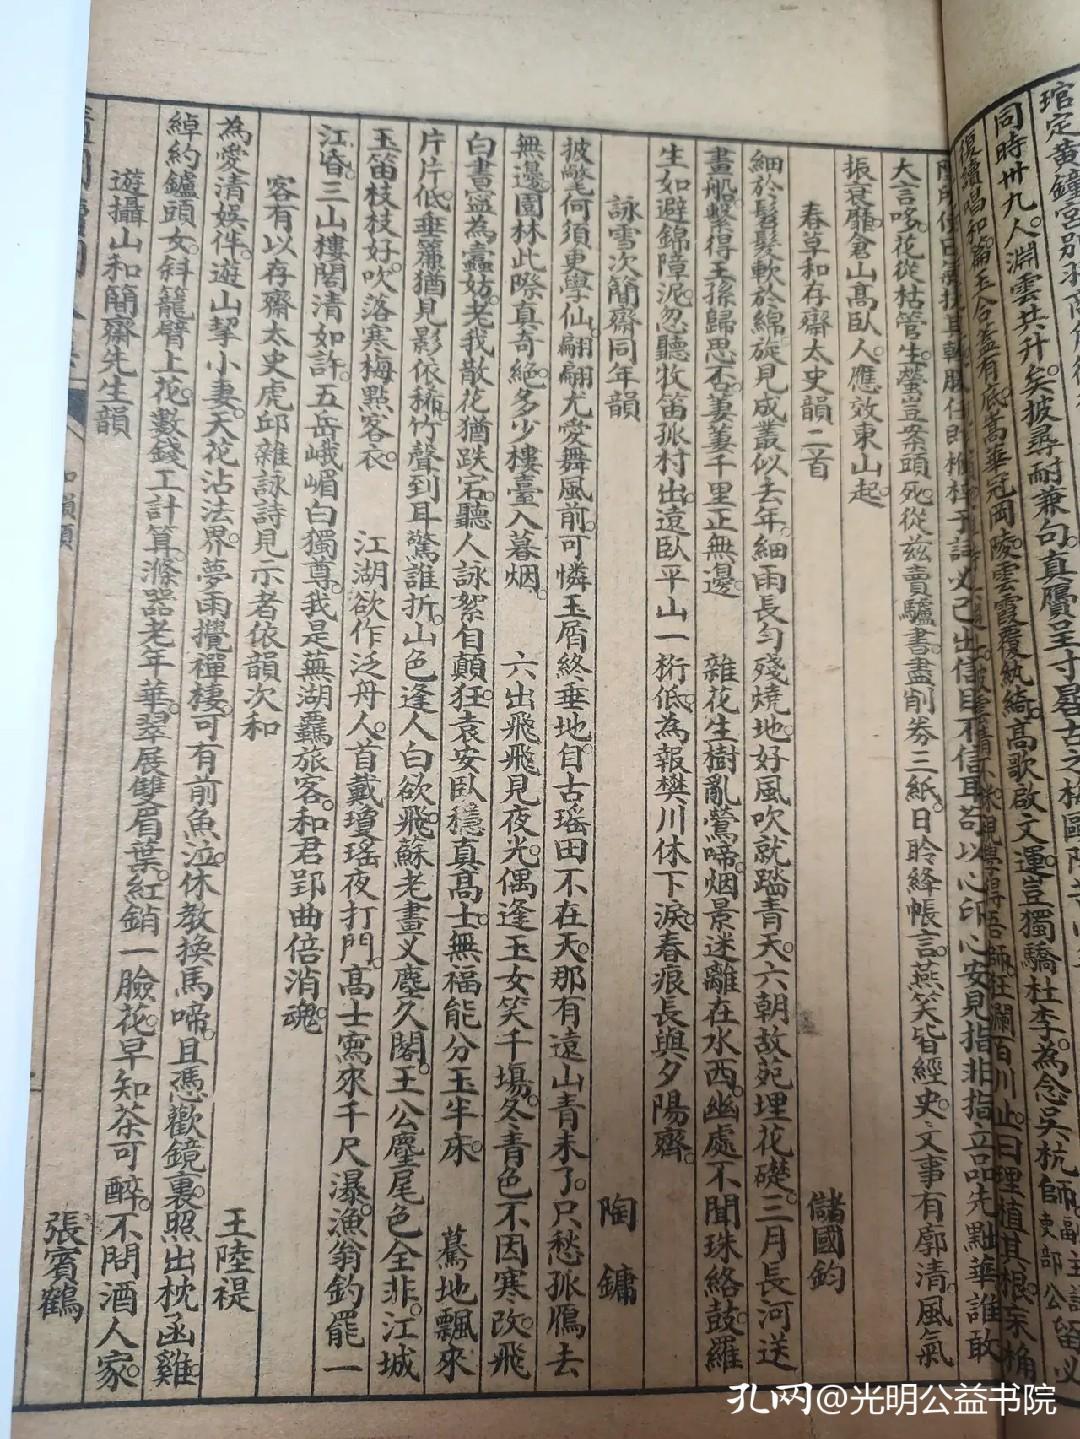 琯定黃鐘宮
同時卅九人淵雲共升矣披尋耐兼句真贗呈寸晷
復續唱和篇玉合蓋有底嵩華冠岡陵雲霞覆紈綺高歌啟文運豈獨驕杜李為念吳杭師
狂瀾百川止曰理植其根
必己出信目不信耳苟以心印心安見指非指立品先黜華誰敢
大言哆花從枯管生螢豈案頭死從茲賣驢書盡削券三紙日聆絳帳言燕笑皆經史文事有廓清風氣
振衰靡倉山高臥人應效東山起
春草和存齋太史韻二首 儲國鈞
細於鬈髮軟於綿旋見成叢似去年細雨長勻殘燒地好風吹就踏青天六朝故苑埋花礎三月長河送
畫船繫得王孫歸思否萋萋千里正無邊 雜花生樹亂鶯啼烟景迷離在水西幽處不聞珠絡鼓羅
生如避錦障泥忽聽牧笛孤村出遠臥平山一桁低為報樊川休下淚春痕長與夕陽齊
詠雪次簡齋同年韻 陶鏞
披氅何須更學仙翩翩尤愛舞風前可憐玉屑終垂地自古瑤田不在天那有遠山青未了只愁孤鴈去
無邊園林此際真奇絕多少樓臺入暮烟 六出飛飛見夜光偶逢玉女笑千場冬青色不因寒改飛
白書寧為蠹妨老我散花猶跌宕聽人詠絮自顛狂袁安臥穩真高士無福能分玉半床 驀地飄來
片片低垂簾猶見影依稀竹聲到耳驚誰折山色逢人白欲飛蘇老畫叉塵久閣王公麈尾色全非江城
玉笛枝枝好吹落寒梅點客衣 江湖欲作泛舟人首戴瓊瑤夜打門高士寫來千尺瀑漁翁釣罷一
江昏三山樓閣清如許五岳峨嵋白獨尊我是蕪湖羈旅客和君郢曲倍消魂
客有以存齋太史虎邱雜詠詩見示者依韻次和 王陸禔
為愛清娛伴遊山挈小妻天花沾法界夢雨攪禪棲可有前魚泣休教換馬啼且憑歡鏡裏照出枕函雞
綽約鑪頭女斜籠臂上花數錢工計算滌器老年華翠展雙眉葉紅銷一臉花早知茶可醉不問酒人家
遊攝山和簡齋先生韻 張賓鶴
孔网@光明公益书院